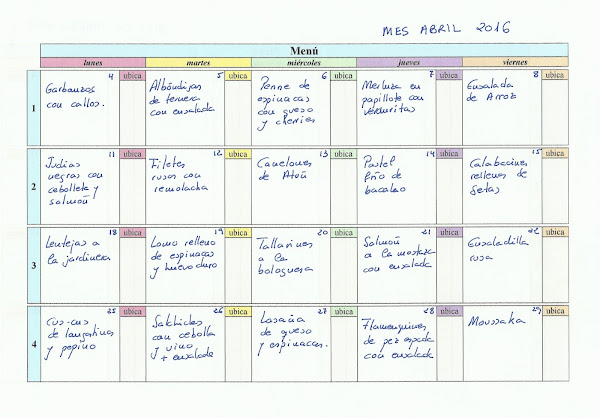 MES ABRIL 2016
Menú
lunes martes miércoles jueves viernes
1
4 ubica
Garbanzos
con callos.
5 ubica
Albóndigas
de ternera
con ensalada
6 ubica
Penne de
espinacas
con queso
y cherries
7 ubica
Merluza en
papillote con
verduritas
8 ubica
Ensalada
de Arroz
2
11 ubica
Judias
negras con
cebolleta y
salmón
12 ubica
Filetes
rusos con
remolacha
13 ubica
Canelones
de Atún
14 ubica
Pastel
frío de
bacalao
15 ubica
Calabacines
rellenos de
setas
3
18 ubica
Lentejas a
la jardinera
19 ubica
Lomo relleno
de espinacas
y huevo duro
20 ubica
Tallarines
a la
bolognesa
21 ubica
Salmón
a la mostaza
con ensalada
22 ubica
Ensaladilla
rusa
4
25 ubica
Cus-cus
de langostinos
y pepino
26 ubica
Salchichas
con cebolla
y vino
+ ensalada
27 ubica
Lasaña
de queso
y espinacas.
28 ubica
Flamenquines
de pez espada
con ensalada
29 ubica
Moussaka